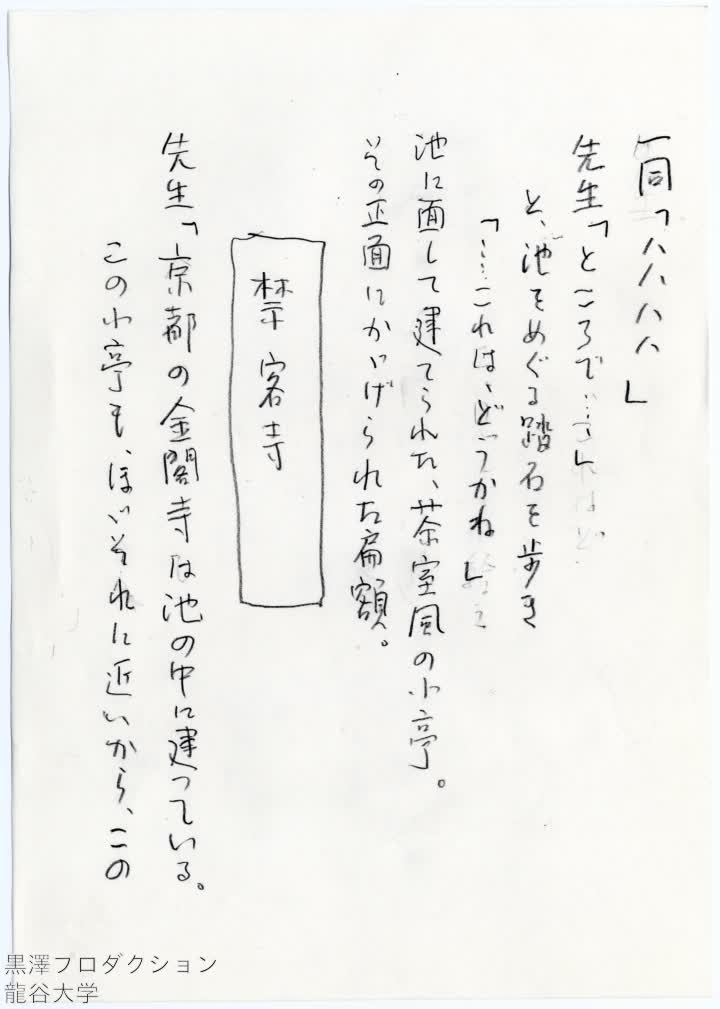 一同「ハハハハ」
先生「ところで……」
と、池をめぐる踏石を歩き
「……これは、どうかね」
池に面して建てられた、茶室風の小亭。
その正面にかゝげられた扁額。
禁客寺
先生「京都の金閣寺は池の中に建っている。
この小亭も、ほゞそれに近いから、この
黒澤プロダクション
龍谷大学